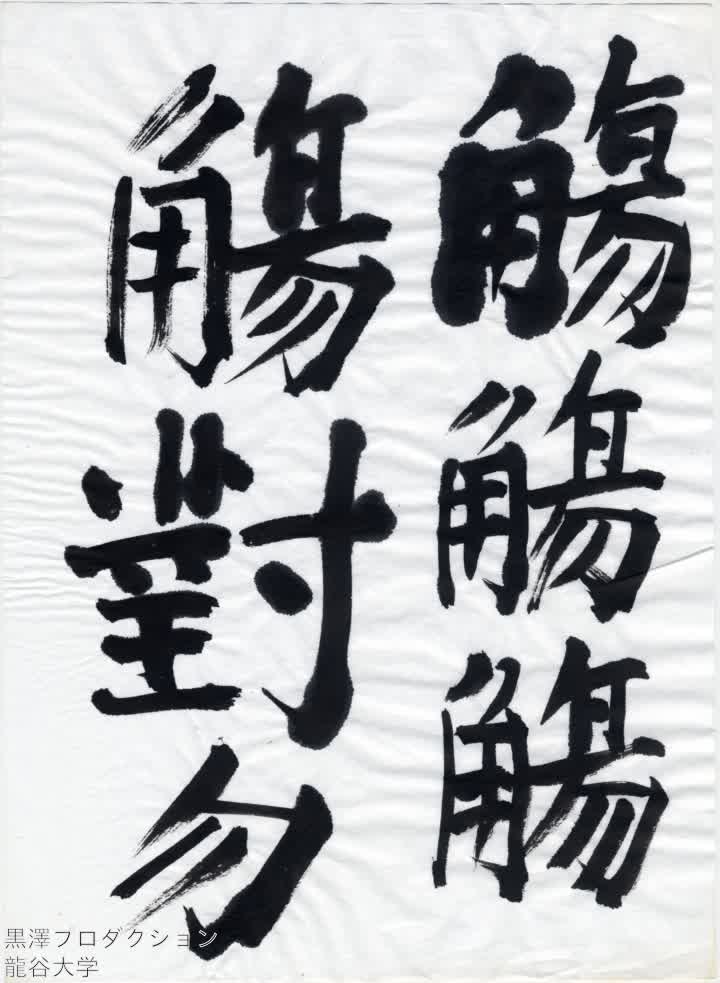 觴觴觴
觴對勿
黒澤プロダクション
龍谷大学